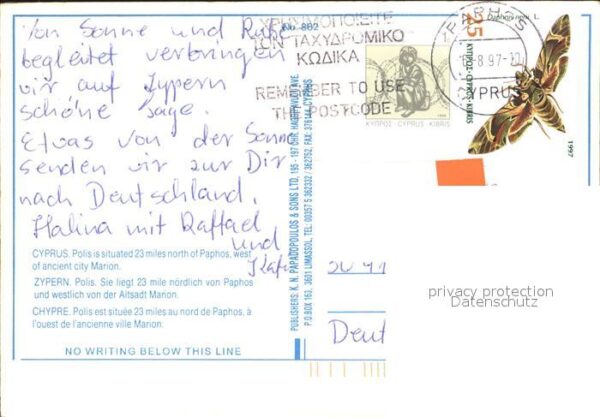 Von Sonne und Ruhe
begleitet verbringen
wir auf Zypern
schöne Tage.
Etwas von der Sonne
senden wir zur Dir
nach Deutschland.
Halina mit Raffael
und
CYPRUS. Polis is situated 23 miles north of Paphos, west
of ancient city Marion.
ZYPERN. Polis. Sie liegt 23 mile nördlich von Paphos
und westlich von der Altsadt Marion.
CHYPRE. Polis est située 23 miles au nord de Paphos, à
l'ouest de l'ancienne ville Marion.
NO WRITING BELOW THIS LINE
No. 802
PUBLISHERS: K. N. PAPADOPOULOS & SONS LTD,
P.O.BOX 163, 3601 LIMASSOL, TEL: 00357 5 362332 / 362752, FAX: CYPRUS
ΧΡΗΣΙΜΟΠΟΙΕΙΤΕ
ΤΟΝ ΤΑΧΥΔΡΟΜΙΚΟ
ΚΩΔΙΚΑ
REMEMBER TO USE
THE POSTCODE
ΚΥΠΡΟΣ - CYPRUS - KIBRIS
PAPHOS
8 97
CYPRUS
25
Daphnis nerii L.
ΚΥΠΡΟΣ-CYPRUS-KIBRIS
1997
Deut
privacy protection
Datenschutz